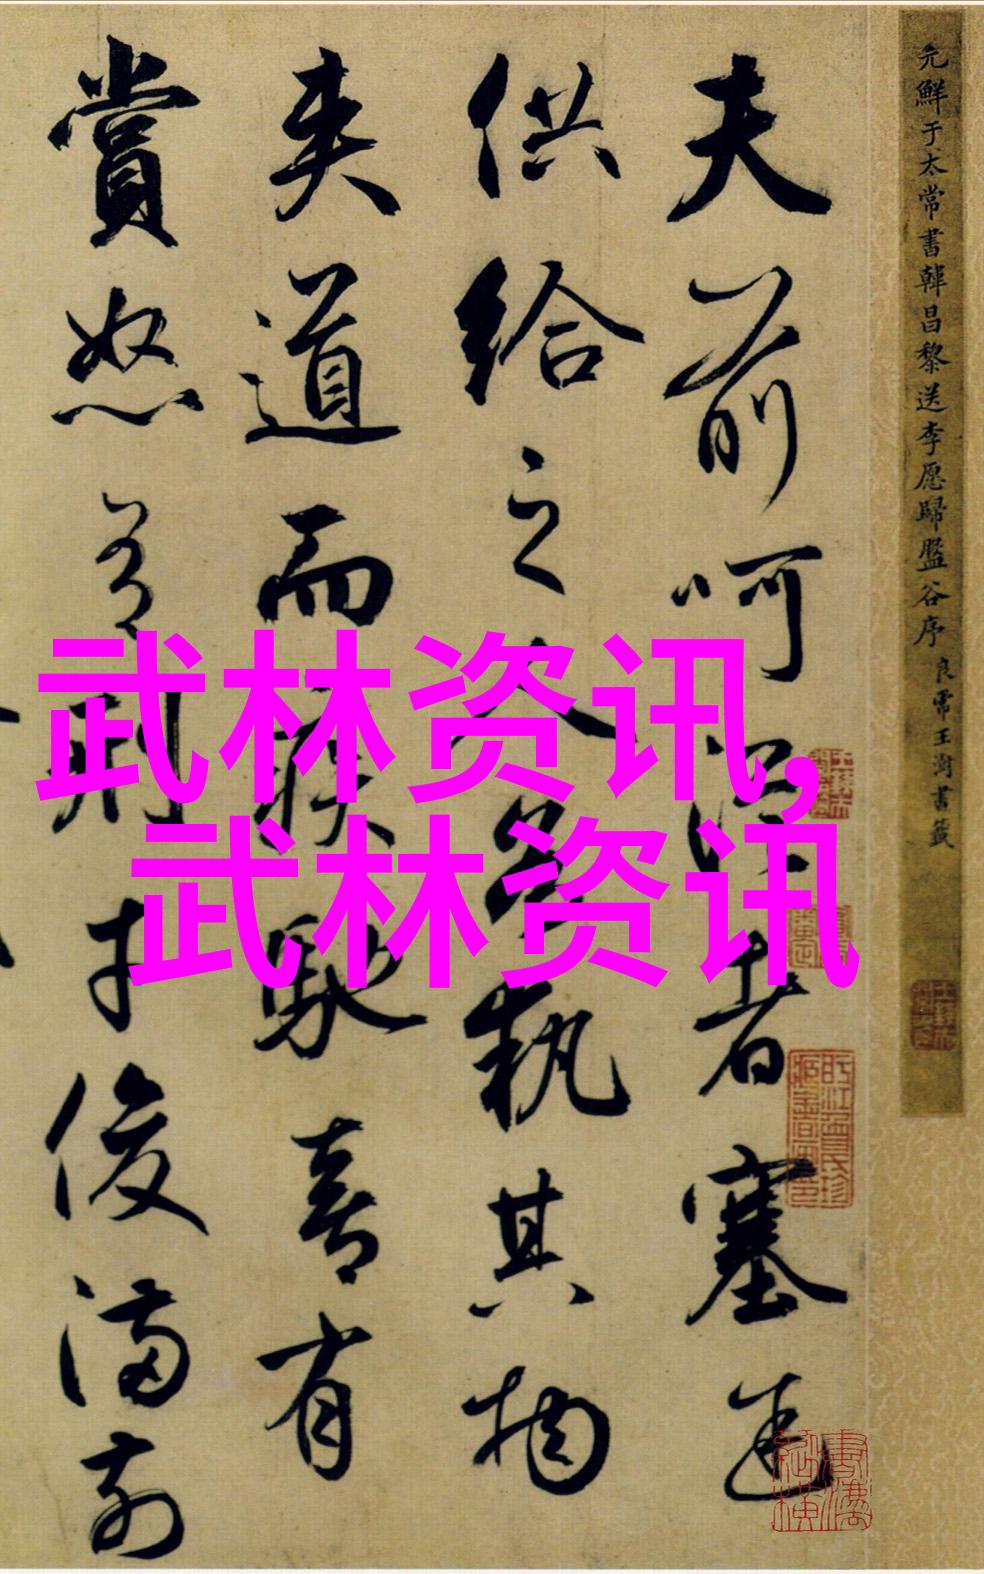 元鮮于太常書韓昌黎送李愿歸盤谷序 良常王澍書籤
夫前呵從者塞途
供給之人各執其物
夾道而疾馳喜有
賞怒有刑才俊滿前
武林资讯,
武林资讯